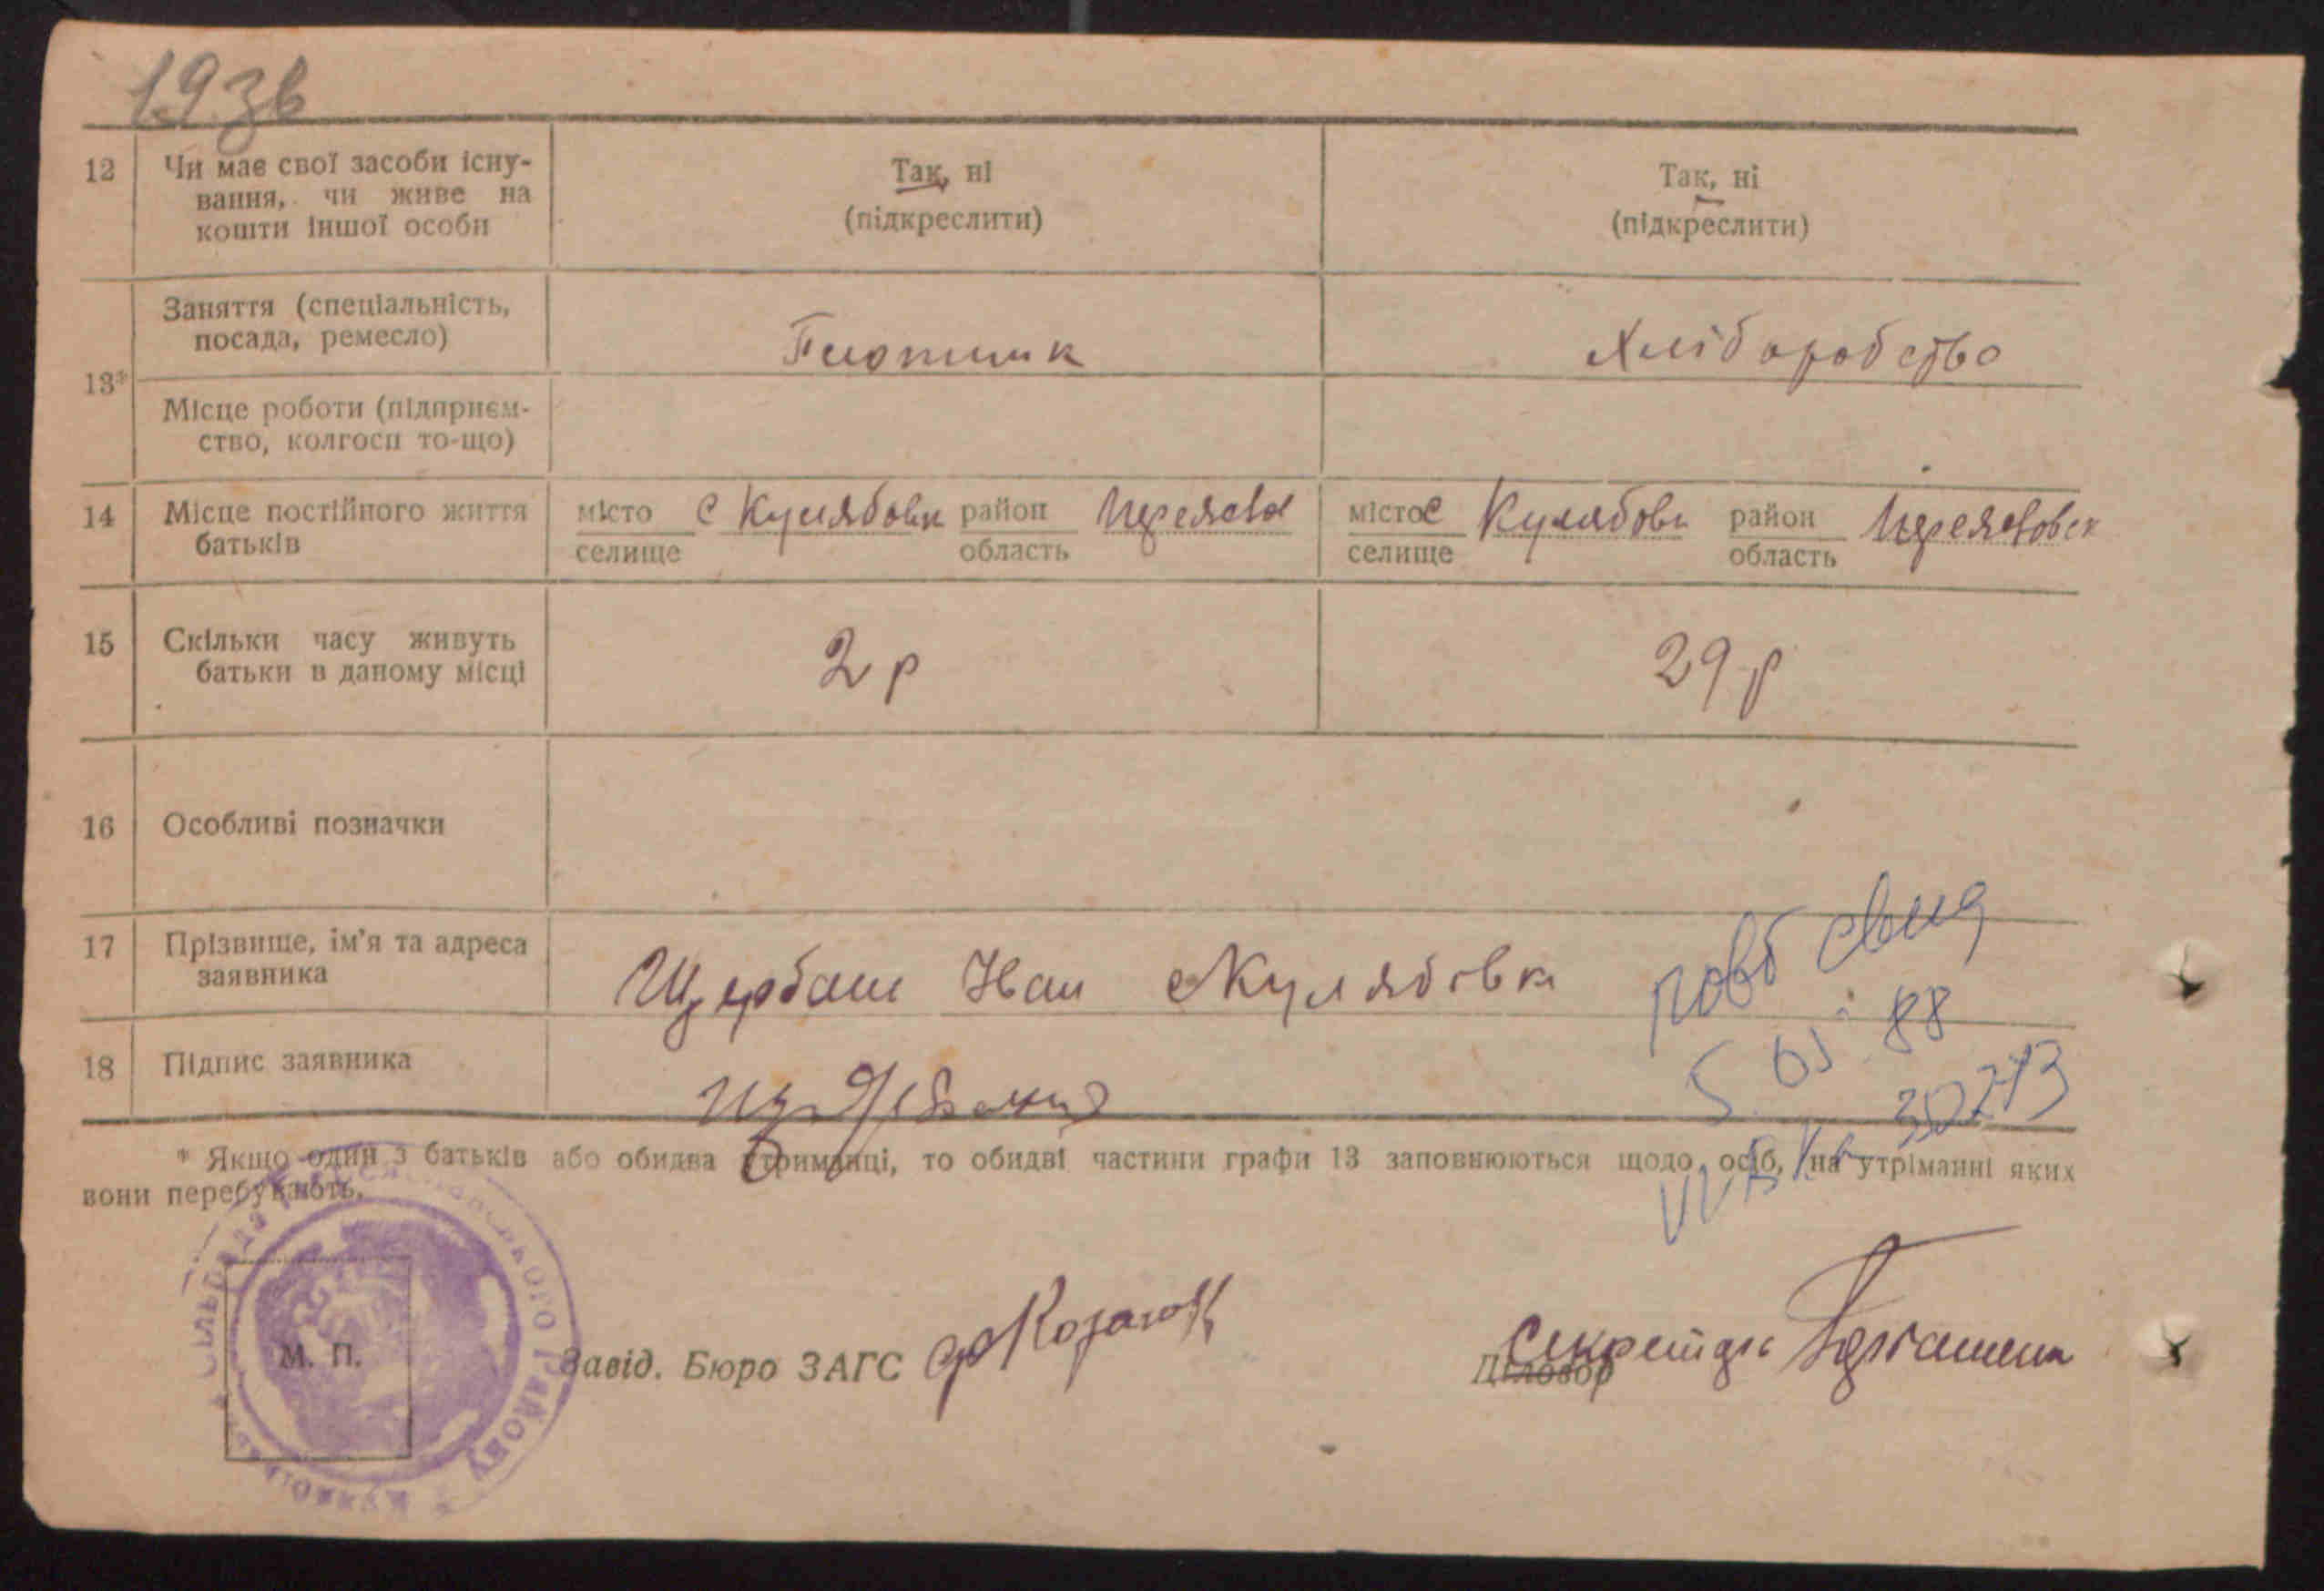 19зв
12 Чи має свої засоби існу-
вання, чи живе на
кошти іншої особи
Так, ні
(підкреслити)
Так, ні
(підкреслити)
13*
Заняття (спеціальність,
посада, ремесло)
Плотник
Хліборобство
Місце роботи (підприєм-
ство, колгосп то-що)
14 Місце постійного життя
батьків
місто
селище
с Кулябовки
район
область
місто
селище
с Кулябовк
район
область
15 Скільки часу живуть
батьки в даному місці
2 р
29 р
16 Особливі позначки
17 Прізвище, ім'я та адреса
заявника
Щербань Иван Кулябівка
повт свид
88
18 Підпис заявника
* Якщо один з батьків або обидва утриманці, то обидві частини графи 13 заповнюються щодо осіб, на утріманні яких
вони перебувають.
М. П.
Завід. Бюро ЗАГС
Діловод
Секретарь